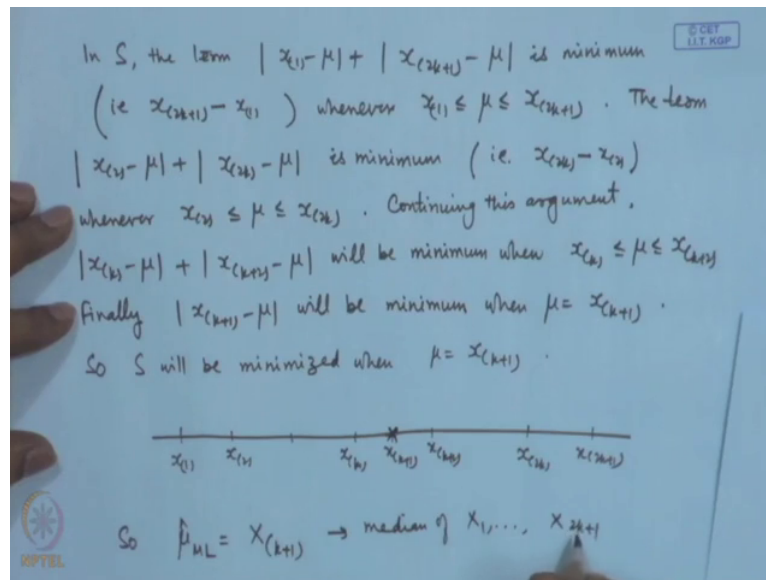 © CET
I.I.T. KGP
In S, the term | x(1) - μ | + | x(2k+1) - μ | is minimum
( ie x(2k+1) - x(1) ) whenever x(1) ≤ μ ≤ x(2k+1) . The term
| x(2) - μ | + | x(2k) - μ | is minimum ( ie. x(2k) - x(2) )
whenever x(2) ≤ μ ≤ x(2k) . Continuing this argument,
| x(k) - μ | + | x(k+2) - μ | will be minimum when x(k) ≤ μ ≤ x(k+2)
Finally | x(k+1) - μ | will be minimum when μ = x(k+1) .
So S will be minimized when μ = x(k+1) .
x(1) x(2) x(k) x(k+1) x(k+2) x(2k) x(2k+1)
So μ̂ML = X(k+1) → median of X1, ..., X2k+1
NPTEL